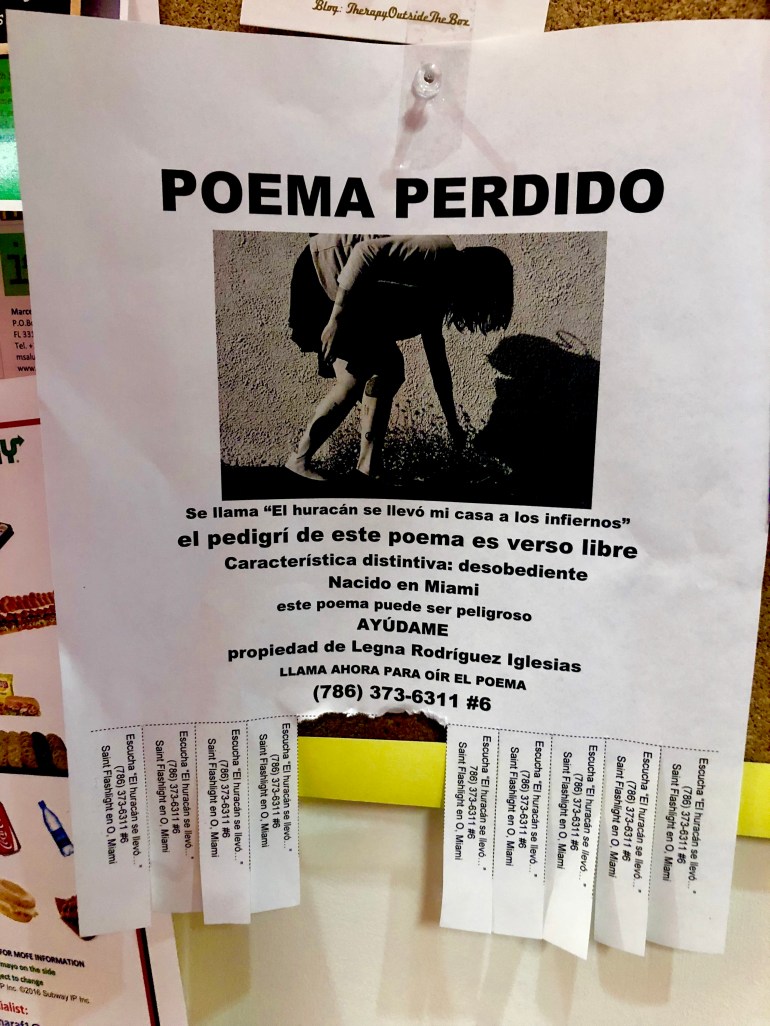 Blog: TherapyOutsideTheBox
POEMA PERDIDO
Se llama “El huracán se llevó mi casa a los infiernos”
el pedigrí de este poema es verso libre
Característica distintiva: desobediente
Nacido en Miami
este poema puede ser peligroso
AYÚDAME
propiedad de Legna Rodríguez Iglesias
LLAMA AHORA PARA OÍR EL POEMA
(786) 373-6311 #6
Escucha "El huracán se llevó..."
(786) 373-6311 #6
Saint Flashlight en O, Miami
Escucha "El huracán se llevó..."
(786) 373-6311 #6
Saint Flashlight en O, Miami
Escucha "El huracán se llevó..."
(786) 373-6311 #6
Saint Flashlight en O, Miami
Escucha "El huracán se llevó..."
(786) 373-6311 #6
Saint Flashlight en O, Miami
Escucha "El huracán se llevó..."
(786) 373-6311 #6
Saint Flashlight en O, Miami
Escucha "El huracán se llevó..."
(786) 373-6311 #6
Saint Flashlight en O, Miami
Escucha "El huracán se llevó..."
(786) 373-6311 #6
Saint Flashlight en O, Miami
Escucha "El huracán se llevó..."
(786) 373-6311 #6
Saint Flashlight en O, Miami
Escucha "El huracán se llevó..."
(786) 373-6311 #6
Saint Flashlight en O, Miami
P.O.
FL 33
Tel. +
www.
FOR MORE INFORMATION
mayo on the side
ject to change
IP Inc. ©2016 Subway IP Inc.
ialist: